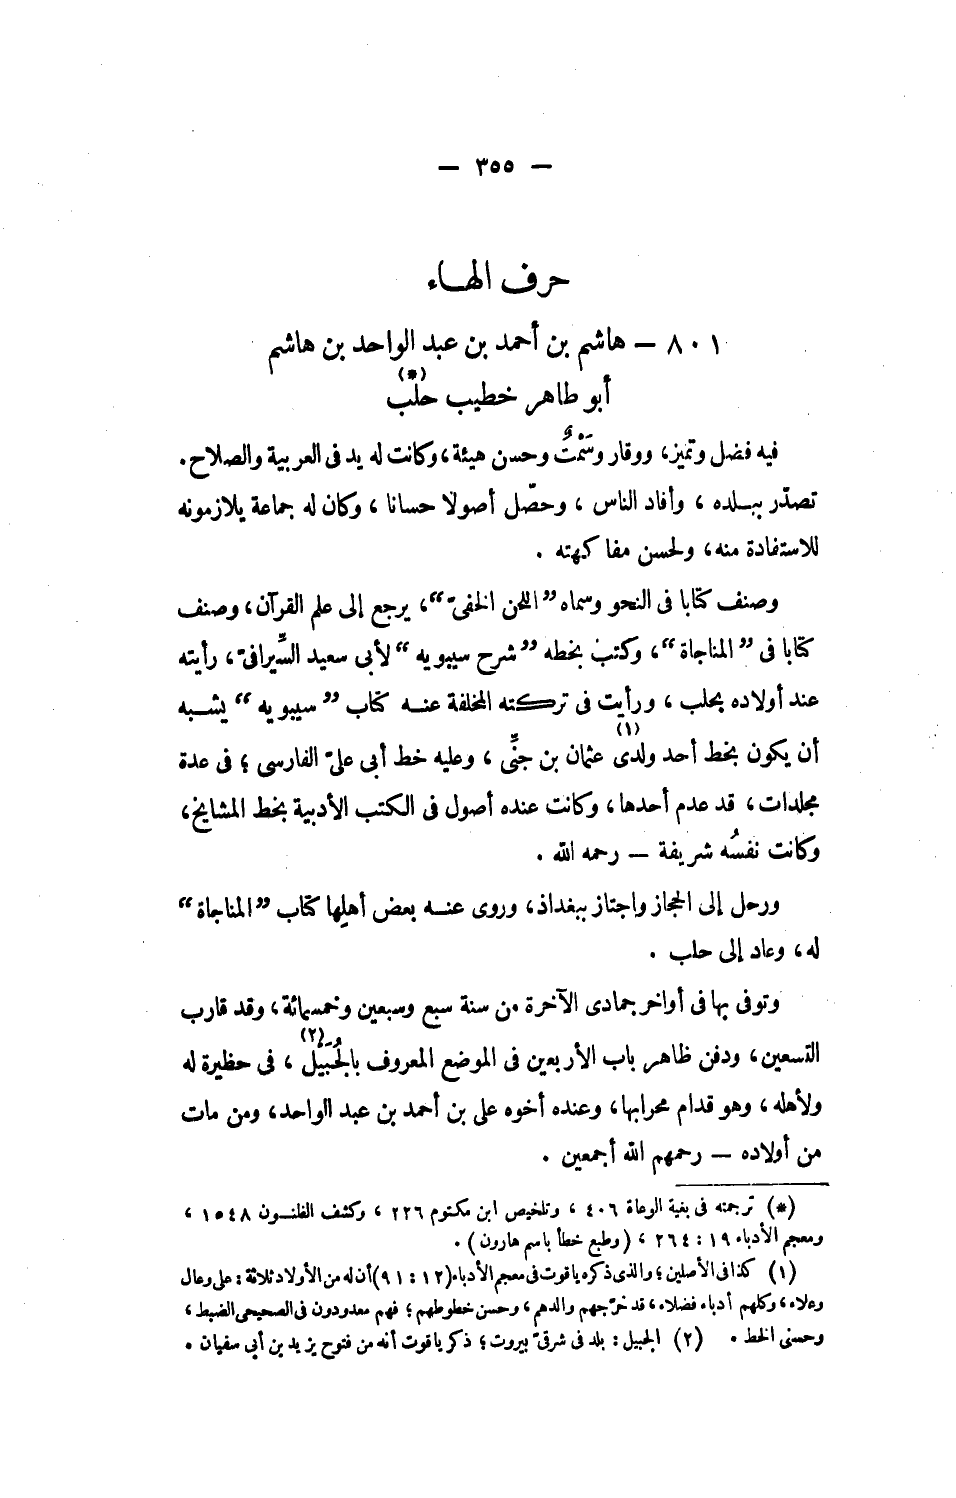 — ٣٥٥ —
حرف الهاء
٨٠١ — هاشم بن أحمد بن عبد الواحد بن هاشم
أبو طاهر خطيب حلب (*)
فيه فضل وتميز، ووقار وسَمْتٌ وحسن هيئة، وكانت له يد فى العربية والصلاح.
تصدّر ببلده، وأفاد الناس، وحصّل أصولا حسانا، وكان له جماعة يلازمونه
للاستفادة منه، ولحسن مفاكهته.
وصنف كتابا فى النحو وسماه ”اللحن الخفىّ“، يرجع إلى علم القرآن، وصنف
كتابا فى ”المناجاة“، وكتب بخطه ”شرح سيبويه“ لأبى سعيد السِّيرافىّ، رأيته
عند أولاده بحلب، ورأيت فى تركته المخلفة عنه كتاب ”سيبويه“ يشبه
أن يكون بخط أحد ولدى (١) عثمان بن جنِّى، وعليه خط أبى علىّ الفارسى؛ فى عدة
مجلدات، قد عدم أحدها، وكانت عنده أصول فى الكتب الأدبية بخط المشايخ،
وكانت نفسُه شريفة — رحمه الله.
ورحل إلى الحجاز واجتاز ببغداذ، وروى عنه بعض أهلها كتاب ”المناجاة“
له، وعاد إلى حلب.
وتوفى بها فى أواخر جمادى الآخرة من سنة سبع وسبعين وخمسمائة، وقد قارب
التسعين، ودفن ظاهر باب الأربعين فى الموضع المعروف بالجُبَيْل (٢)، فى حظيرة له
ولأهله، وهو قدام محرابها، وعنده أخوه على بن أحمد بن عبد الواحد، ومن مات
من أولاده — رحمهم الله أجمعين.
(*) ترجمته فى بغية الوعاة ٤٠٦، وتلخيص ابن مكتوم ٢٢٦، وكشف الظنون ١٥٤٨،
ومعجم الأدباء ١٩ : ٢٦٤، (وطبع خطأ باسم هارون).
(١) كذا فى الأصلين؛ والذى ذكره ياقوت فى معجم الأدباء (١٢ : ٩١) أن له من الأولاد ثلاثة: على وعال
وعلاء، وكلهم أدباء فضلاء، قد خرّجهم والدهم، وحسن خطوطهم؛ فهم معدودون فى الصحيحى الضبط،
وحسنى الخط. (٢) الجبيل: بلد فى شرقىّ بيروت؛ ذكر ياقوت أنه من فتوح يزيد بن أبى سفيان.